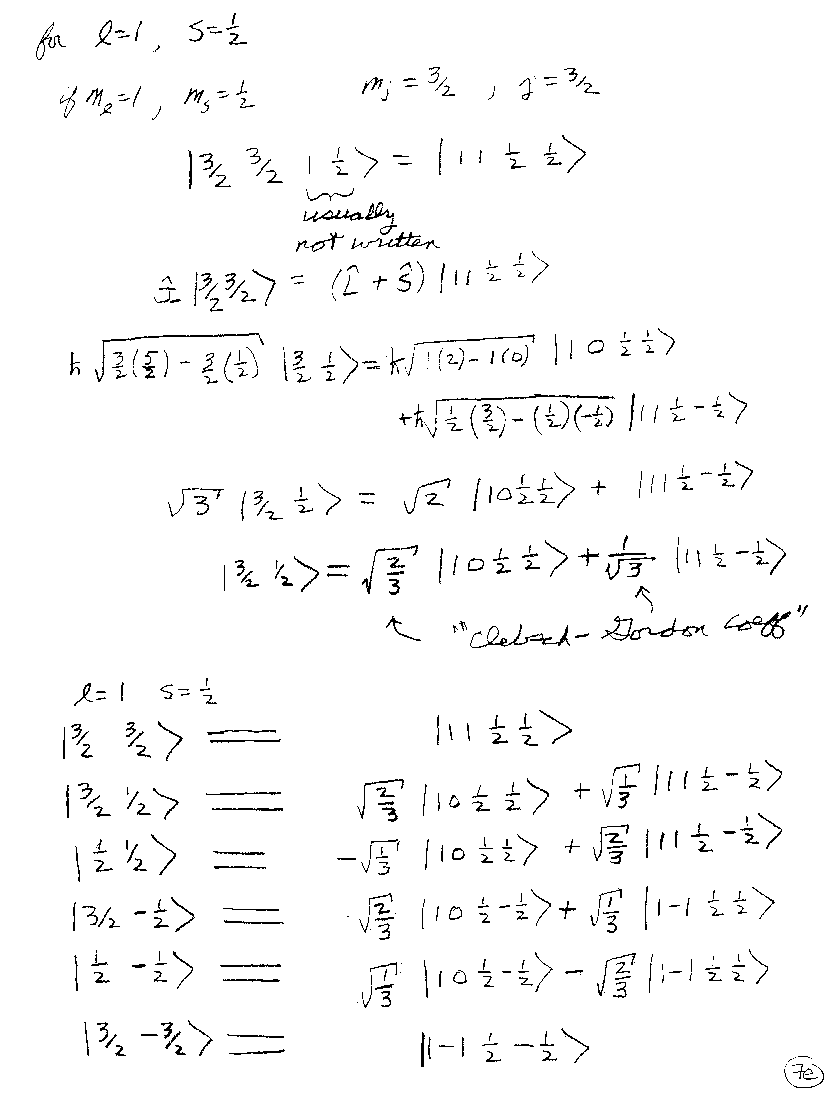 for l=1, s=½
if mₗ=1, mₛ=½ mⱼ = 3/2 , j = 3/2
|3/2 3/2 1 ½⟩ = |11 ½ ½⟩
usually
not written
Ĵ |3/2 3/2⟩ = (L̂ + Ŝ) |11 ½ ½⟩
ħ √(3/2(5/2) - 3/2(½)) |3/2 ½⟩ = ħ√(1(2) - 1(0)) |10 ½ ½⟩
+ħ√(½(3/2) - (½)(-½)) |11 ½ -½⟩
√3 |3/2 ½⟩ = √2 |10 ½ ½⟩ + |11 ½ -½⟩
|3/2 ½⟩ = √(2/3) |10 ½ ½⟩ + 1/√3 |11 ½ -½⟩
"Clebsch-Gordon coeff"
l=1 s=½
|3/2 3/2⟩ = |11 ½ ½⟩
|3/2 ½⟩ = √(2/3) |10 ½ ½⟩ + √(1/3) |11 ½ -½⟩
|½ ½⟩ = -√(1/3) |10 ½ ½⟩ + √(2/3) |11 ½ -½⟩
|3/2 -½⟩ = √(2/3) |10 ½ -½⟩ + √(1/3) |1-1 ½ ½⟩
|½ -½⟩ = √(1/3) |10 ½ -½⟩ - √(2/3) |1-1 ½ ½⟩
|3/2 -3/2⟩ = |1-1 ½ -½⟩
7e